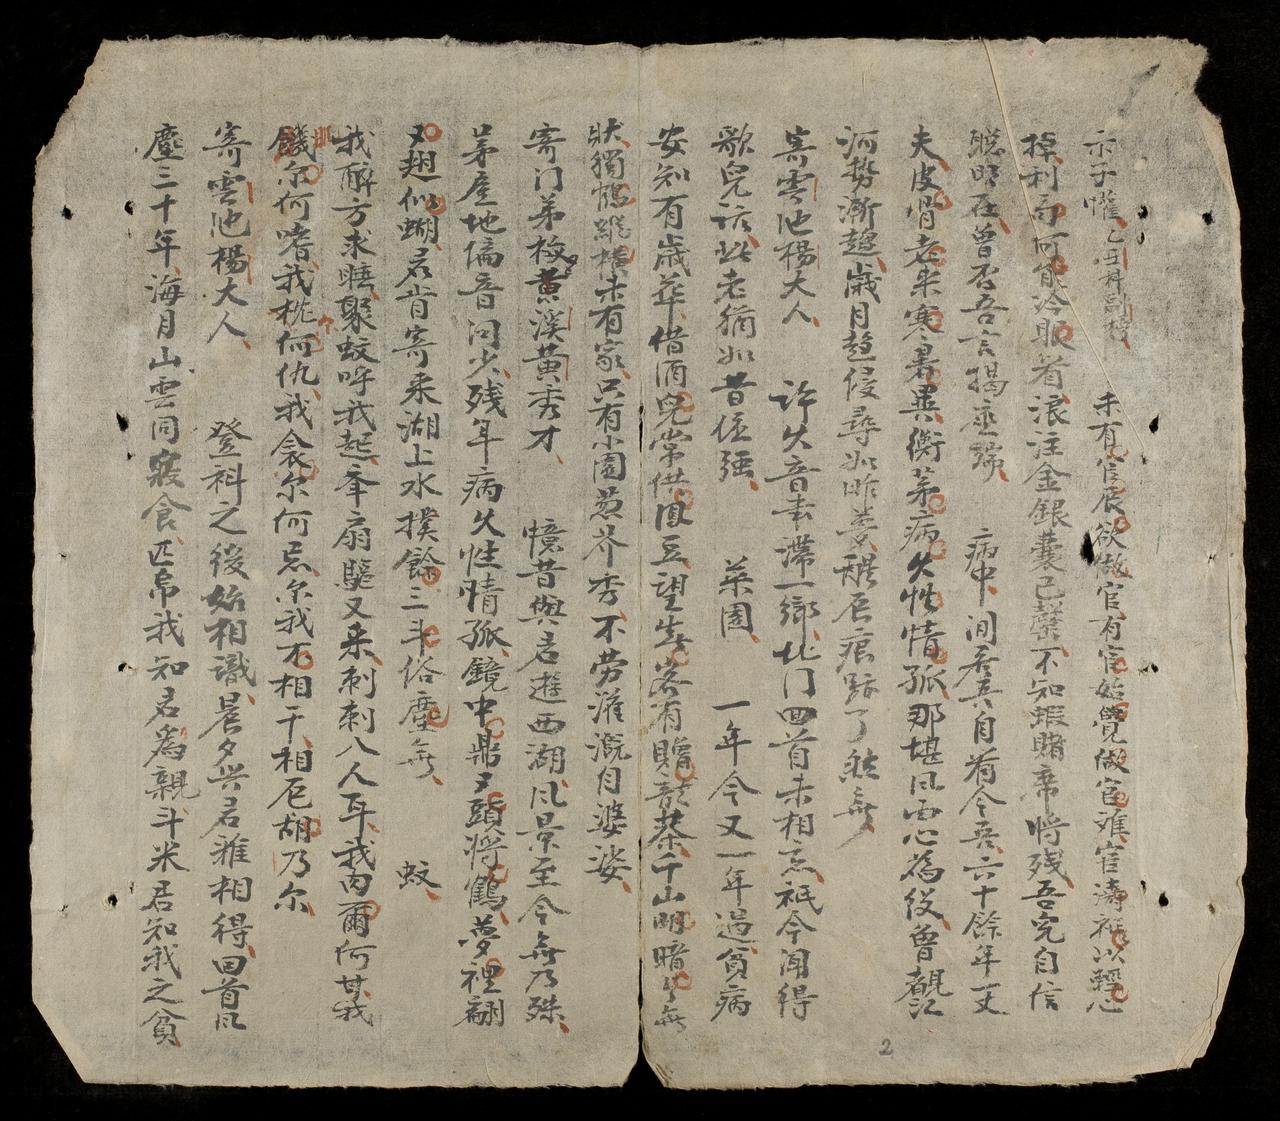 示子懽乙丑科副榜 未有官辰欲做官有官始覺做官难官濤視以輕心
掉利局何能冷眼看浪注金銀囊已罄不知蝦賭席将残吾究自信
聪明在曾否吾言揭並端 病中閒居 自省今吾六十餘年丈
夫皮骨老来寒暑異衡茅病久性情孤那堪风雨心為役曾覩江
河勢漸趨歲月 侵尋如昨 醒后痕跡了然無
寄雲池楊大人 許久音書滯一鄉北门回首未相忘祇今闻得
歌兒訴此老猶如昔倔强 菜園 一年今又一年過貧病
安知有歲華借酒兒常供 豆望生客有贈 茶千山明暗 無
狀獨鶴縱横未有家只有小園葱芥秀不劳灌溉自婆娑
寄门弟校黄溪黄秀才 憶昔與君遊西湖风景至今無乃殊
茅座地偏音问少残年病久性情孤鏡中鼎 頭将鶴夢裡翩
又翅似蝴君肯寄来湖上水撲餘三斗俗塵無 蚊
我醉方求睡聚蚊呼我起奉扇驅又来刺刺八人耳我肉爾何甘我
饑尔何嗜我枕何仇我衾尔何忌尔我不相干相厄胡乃尔
寄雲池楊大人 登科之後始相識晨夕與君雅相得回首风
塵三十年海月山雲同寢食匹帛我知君為親斗米君知我之貧
2